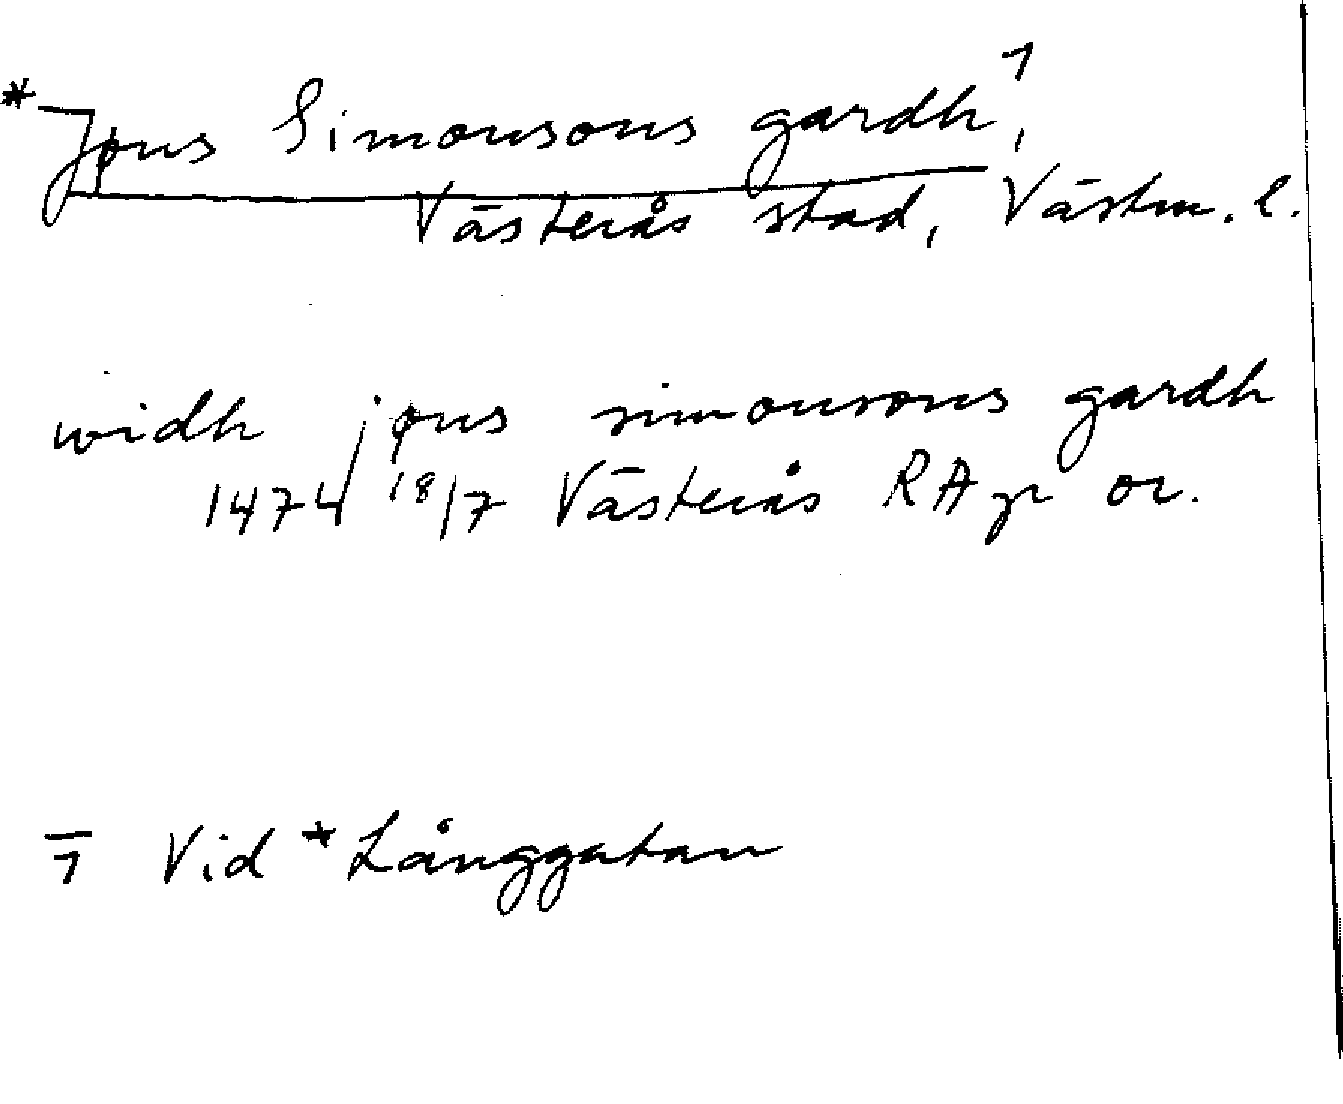 *Jøns Simonsons gardh¹,
Västerås stad, Västm. l.
widh jøns simonsons gardh
1474 18/7 Västerås RAp or.
1 Vid *Långgatan